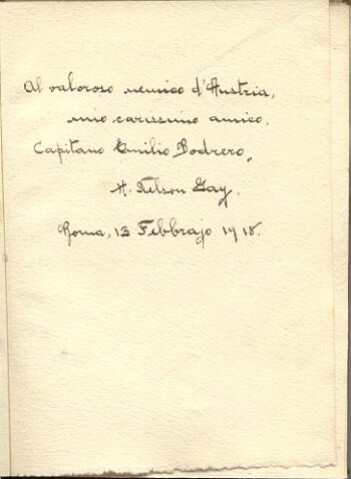 Al valoroso nemico d'Austria,
mio carissimo amico.
Capitano Emilio Bodrero,
H. Nelson Gay.
Roma, 13 Febbrajo 1918.